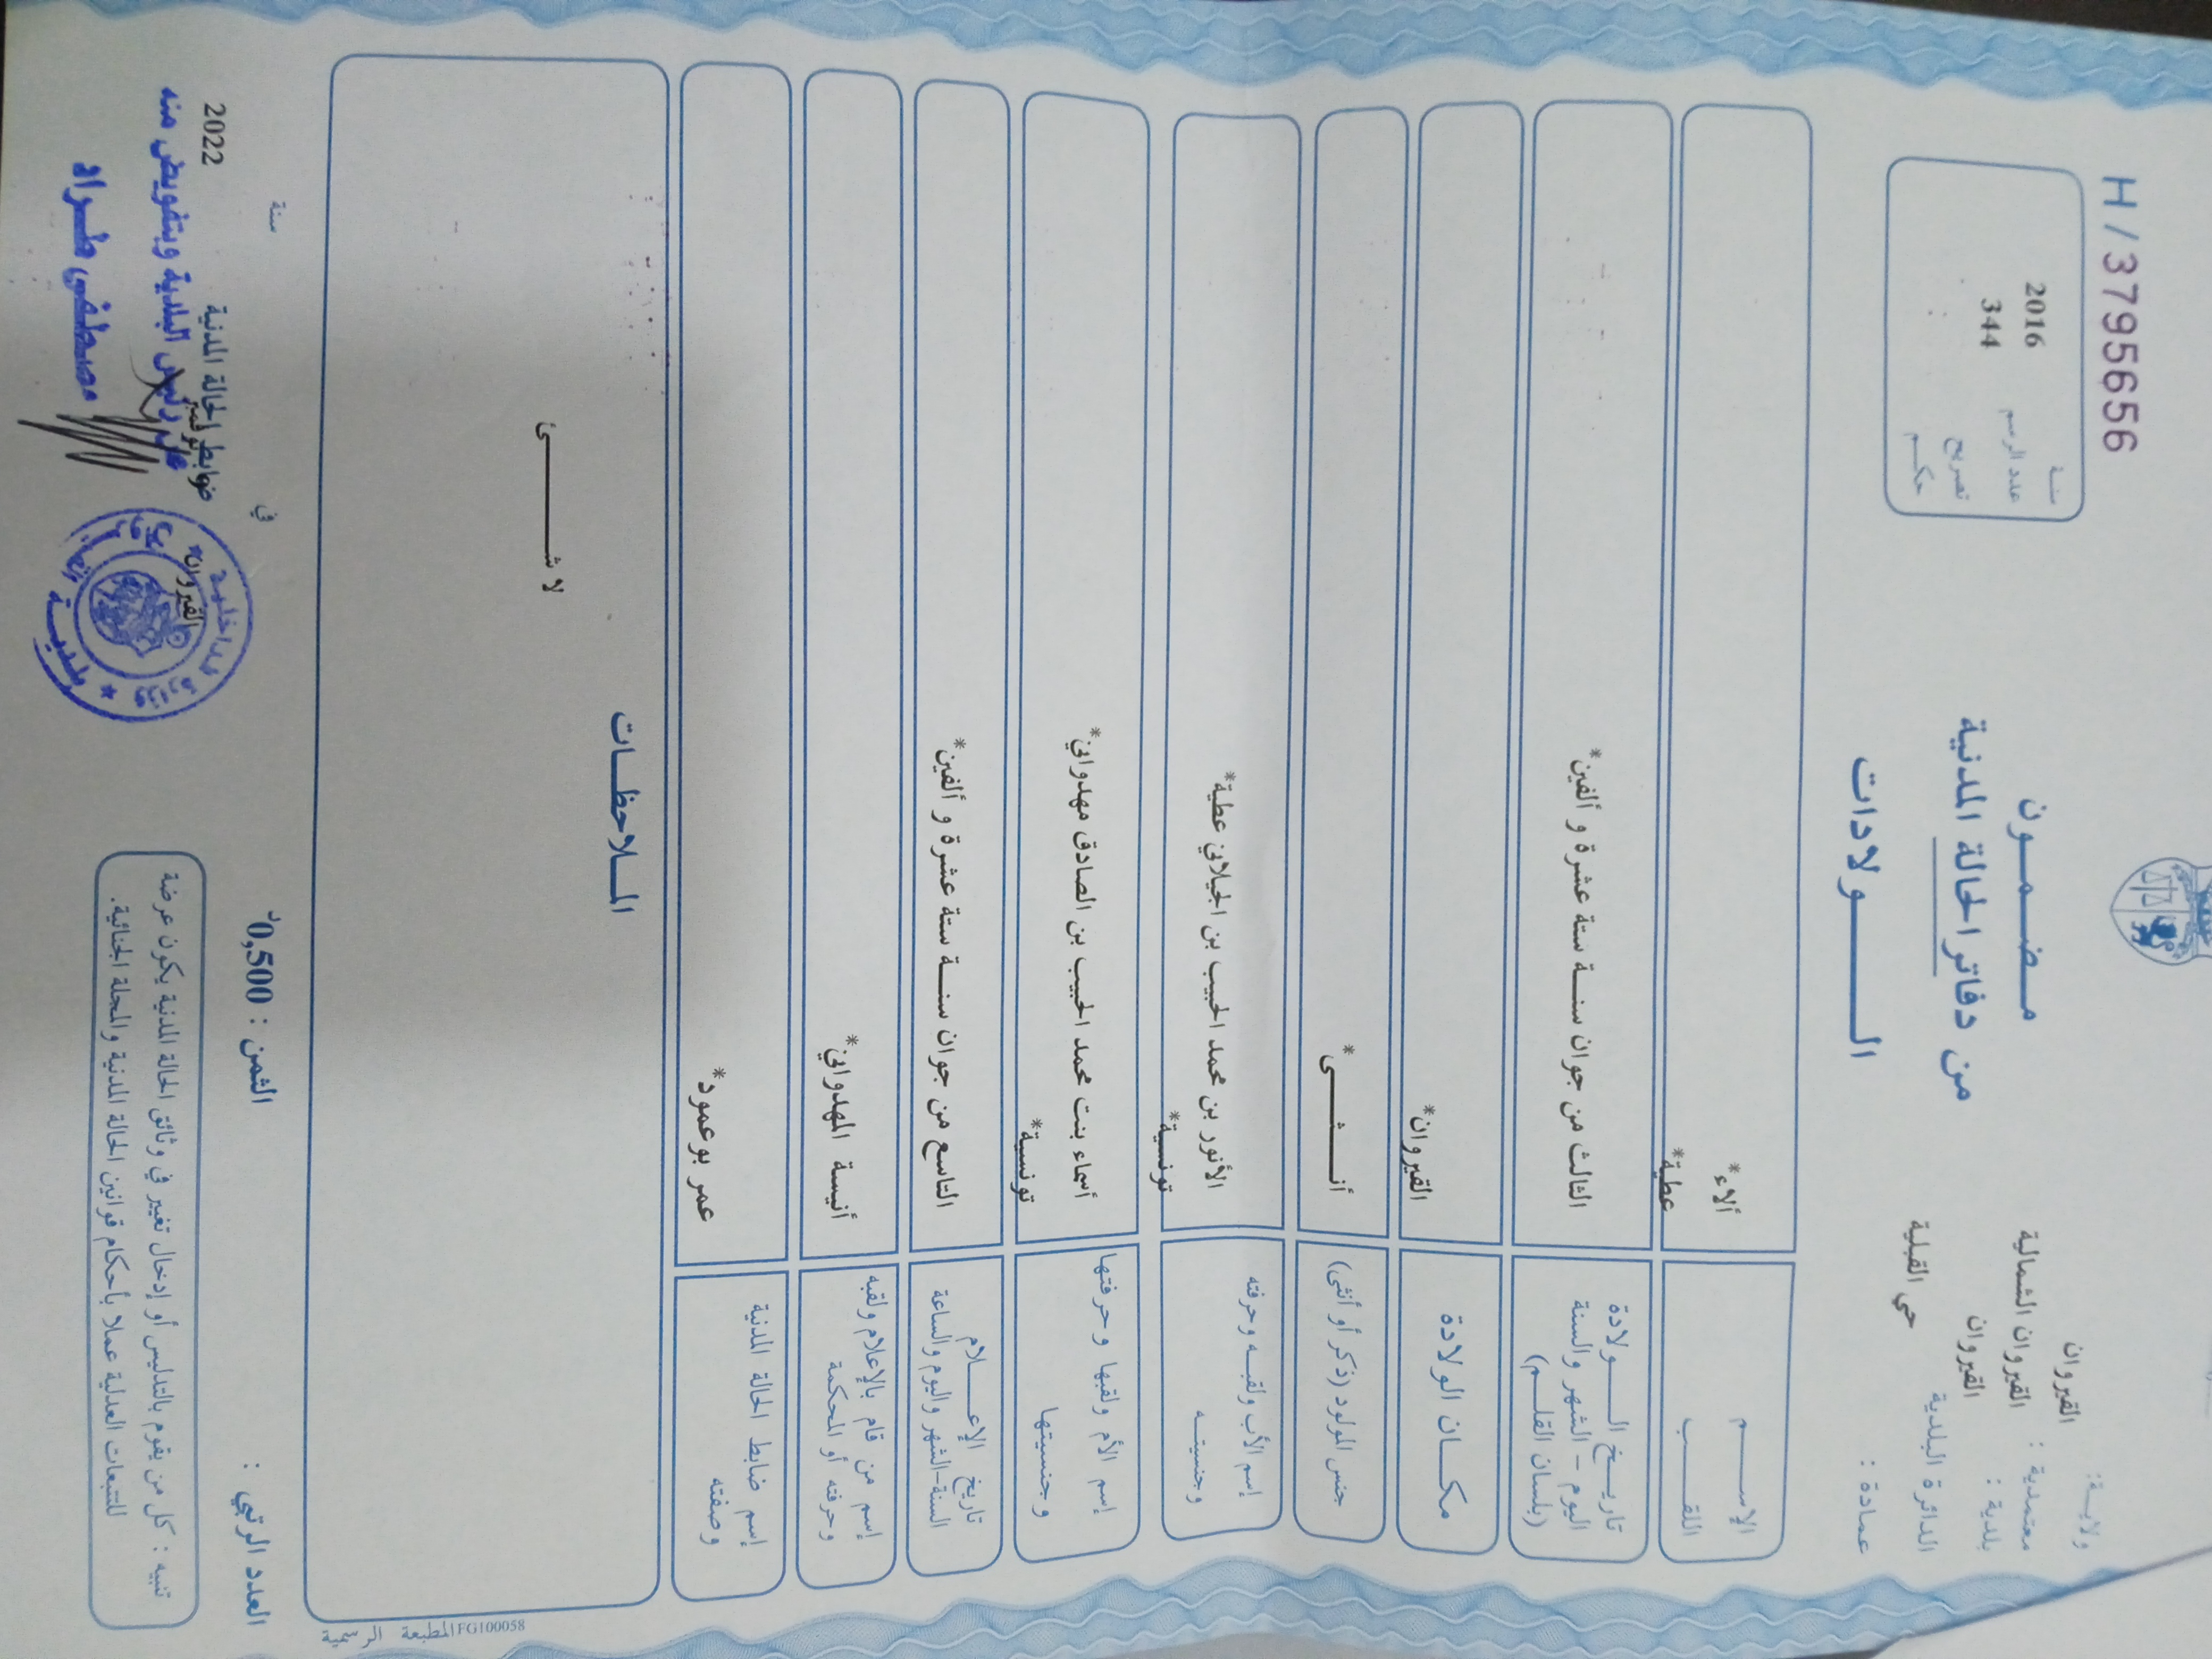 H/3795656
سنة 2016
عدد الرسم 344
تصريح
حكم
مضمون
من دفاتر الحالة المدنية
الولادات
ولاية: القيروان
معتمدية : القيروان الشمالية
بلدية : القيروان
الدائرة البلدية حي القبلية
عمادة :
الإسم ألاء*
اللقب عطية*
تاريخ الولادة
اليوم - الشهر والسنة
(بلسان القلم)
الثالث من جوان سنة ستة عشرة و ألفين*
مكان الولادة القيروان*
جنس المولود (ذكر أو أنثى) أنثى*
إسم الأب ولقبه وحرفته
وجنسيته
الأنور بن محمد الحبيب بن الجيلاني عطية*
تونسية*
إسم الأم ولقبها وحرفتها
وجنسيتها
أسماء بنت محمد الحبيب بن الصادق مهدواني*
تونسية*
تاريخ الإعلام
السنة-الشهر واليوم والساعة
التاسع من جوان سنة ستة عشرة و ألفين*
إسم من قام بالإعلام ولقبه
وحرفته أو المحكمة
أنيسة المهدواني*
إسم ضابط الحالة المدنية
وصفته
عمر بوعمود*
الملاحظات
لا شئ
المطبعة الرسمية FG100058
العدد الرتبي :
الثمن : 0,500د
في
سنة
القيروان
نوفمبر
2022
ضابط الحالة المدنية
عن رئيس البلدية وبتفويض منه
مصطفى طراد
تنبيه : كل من يقوم بالتدليس أو إدخال تغيير في وثائق الحالة المدنية يكون عرضة
للتتبعات العدلية عملا بأحكام قوانين الحالة المدنية والمجلة الجنائية.